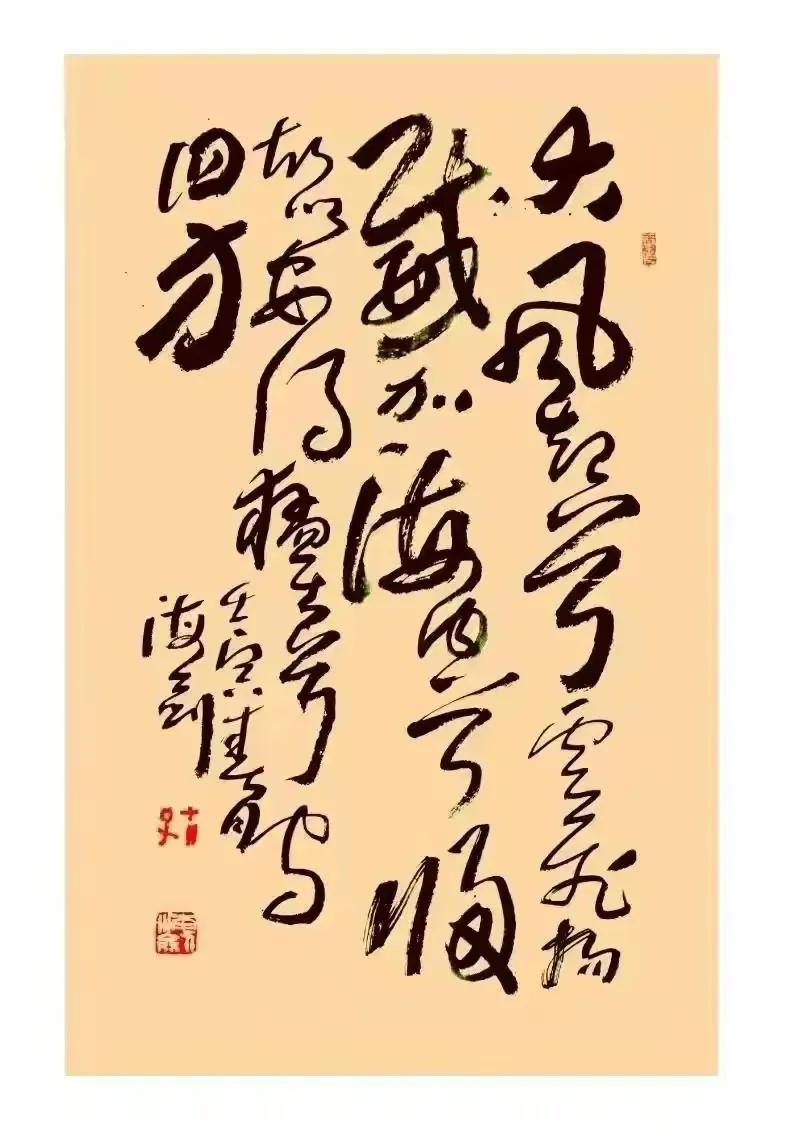 大風起兮雲飛揚
威加海内兮歸
故鄉安得猛士兮守
四方
壬寅
海劍